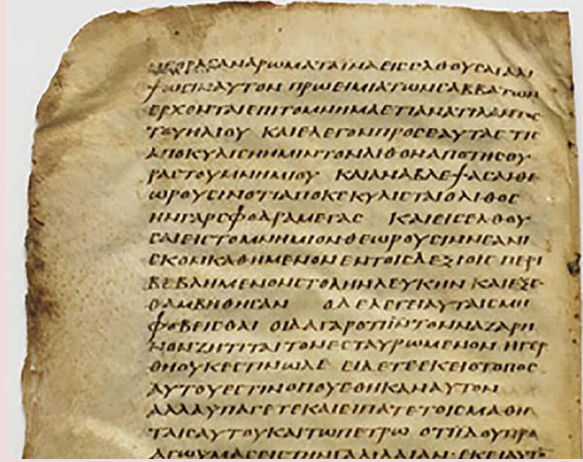 ΗΓΟΡΑϹΑΝΑΡΩΜΑΤΑΙΝΑΕΙϹΕΛΘΟΥϹΑΙΑΛΙ
ΨΩϹΙΝΑΥΤΟΝ ΠΡΩΕΙΜΙΑΤΩΝϹΑΒΒΑΤΩΝ
ΕΡΧΟΝΤΑΙΕΠΙΤΟΜΝΗΜΑΕΤΙΑΝΑΤΙΛΑΝΤΟϹ
ΤΟΥΗΛΙΟΥ ΚΑΙΕΛΕΓΟΝΠΡΟϹΕΑΥΤΑϹΤΙϹ
ΑΠΟΚΥΛΙϹΗΗΜΙΝΤΟΝΛΙΘΟΝΑΠΟΤΗϹΘΥ
ΡΑϹΤΟΥΜΝΗΜΙΟΥ ΚΑΙΑΝΑΒΛΕΨΑϹΑΙΘΕ
ΩΡΟΥϹΙΝΟΤΙΑΠΟΚΕΚΥΛΙϹΤΑΙΟΛΙΘΟϹ
ΗΝΓΑΡϹΦΟΔΡΑΜΕΓΑϹ ΚΑΙΕΙϹΕΛΘΟΥ
ϹΑΙΕΙϹΤΟΜΝΗΜΙΟΝΘΕΩΡΟΥϹΙΝΝΕΑΝΙ
ϹΚΟΝΚΑΘΗΜΕΝΟΝΕΝΤΟΙϹΔΕΞΙΟΙϹ ΠΕΡΙ
ΒΕΒΛΗΜΕΝΟΝϹΤΟΛΗΝΛΕΥΚΗΝ ΚΑΙΕΞΕ
ΘΑΜΒΗΘΗϹΑΝ ΟΔΕΛΕΓΕΙΑΥΤΑΙϹΜΗ
ΦΟΒΕΙϹΘΑΙ ΟΙΔΑΓΑΡΟΤΙΙ̅Ν̅ΤΟΝΝΑΖΑΡΗ
ΝΟΝΖΗΤΙΤΑΙΤΟΝΕϹΤΑΥΡΩΜΕΝΟΝ ΗΓΕΡ
ΘΗΟΥΚΕϹΤΙΝΩΔΕ ΕΙΔΕΤΕΕΚΕΙΟΤΟΠΟϹ
ΑΥΤΟΥΕϹΤΙΝΟΠΟΥΕΘΗΚΑΝΑΥΤΟΝ
ΑΛΛΑΥΠΑΓΕΤΕΚΑΙΕΙΠΑΤΕΤΟΙϹΜΑΘΗ
ΤΑΙϹΑΥΤΟΥΚΑΙΤΩΠΕΤΡΩ ΟΤΙΙΔΟΥΠΡΟ
ΑΓΩΥΜΑϹΕΙϹΤΗΝΓΑΛΙΛΑΙΑΝ ΕΚΕΙΑΥΤ